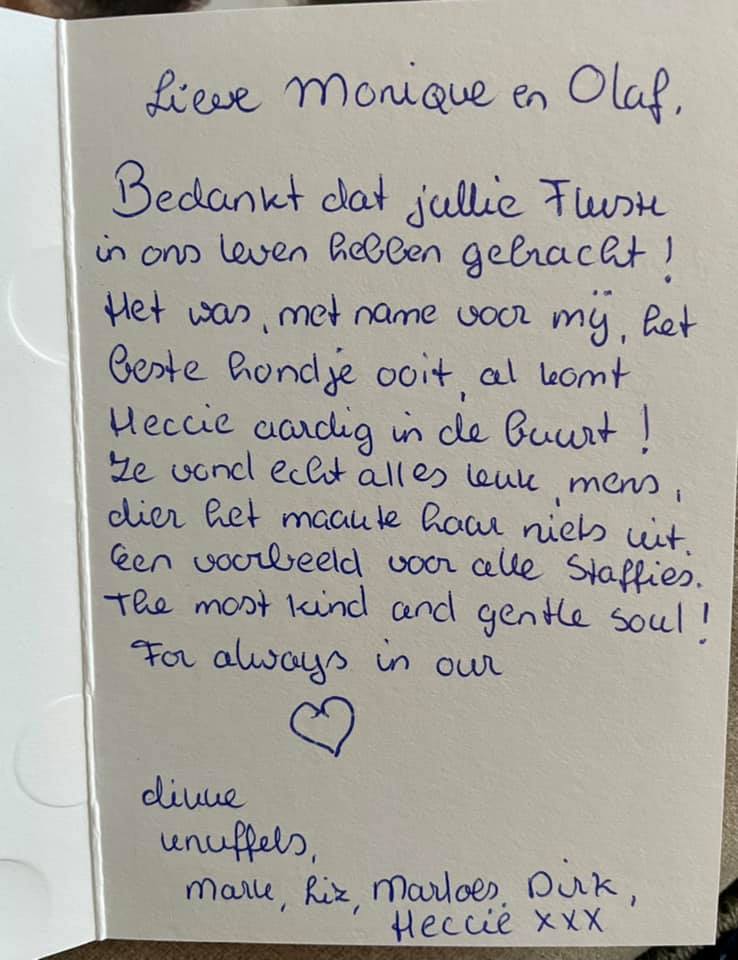 Lieve Monique en Olaf,
Bedankt dat jullie
in ons leven hebben gebracht!
Het was, met name voor mij, het
beste hondje ooit, al komt
Heccie aardig in de buurt!
Ze vond echt alles leuk, mens,
dier het maakte haar niets uit.
Een voorbeeld voor alle Staffies.
The most kind and gentle soul!
For always in our
dikke
knuffels,
Mark, Liz, Marloes, Dirk,
Heccie xxx